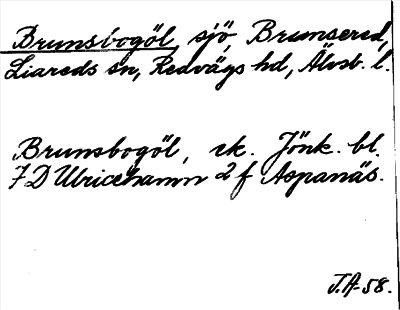 Brunsbogöl, sjö, Brunsered,
Liareds sn, Redvägs hd, Älvsb. l.
Brunsbogöl, ek. Jönk. bl.
7 D Ulricehamn 2 f Aspanäs.
J.A. 58.